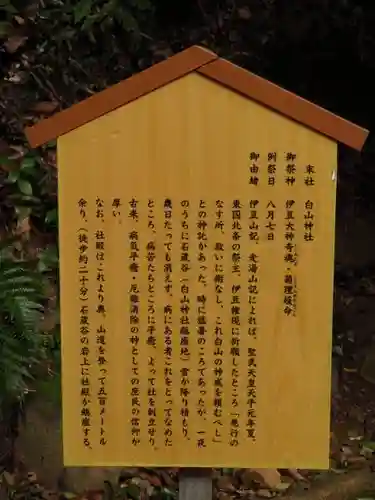 末社 白山神社
御祭神 伊豆大神奇魂・菊理媛命
例祭日 八月七日
御由緒 伊豆山記、走湯山記によれば、聖武天皇天平元年夏、
東国北条の祭主、伊豆権現に祈願したところ「悪行の
なす所、救いに術なし、これ白山の神威を頼むべし」
との神託があった。時に猛暑のころであったが、一夜
のうちに石蔵谷(白山神社鎮座地)雪が降り積もり、
幾日たっても消えず。病にある者これをとってなめた
ところ、病苦たちどころに平癒、よって社を創立せり。
古来、病気平癒・厄難消除の神としての庶民の信仰が
厚い。
なお、社殿はこれより奥、山道を登って五百メートル
余り、(徒歩約二十分)石蔵谷の岩上に社殿が鎮座する。